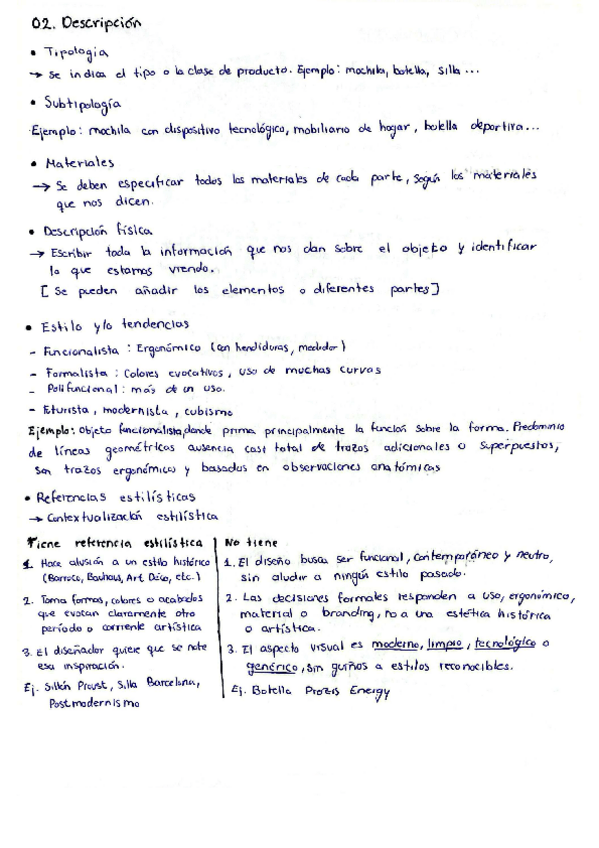 02. Descripción
• Tipología
→ Se indica el tipo o la clase de producto. Ejemplo: mochila, botella, silla...
• Subtipología
Ejemplo: mochila con dispositivo tecnológico, mobiliario de hogar, botella deportiva...
• Materiales
→ Se deben especificar todos los materiales de cada parte, según los materiales
que nos dicen.
• Descripción física
→ Escribir toda la información que nos dan sobre el objeto y identificar
lo que estamos viendo.
[Se pueden añadir los elementos o diferentes partes]
• Estilo y/o tendencias
- Funcionalista : Ergonómico (con hendiduras, medidor)
- Formalista : Colores evocativos, uso de muchas curvas
- Polifuncional : más de un uso.
- Futurista, modernista, cubismo
Ejemplo: Objeto funcionalista, donde prima principalmente la función sobre la forma. Predominio
de líneas geométricas ausencia casi total de trazos adicionales o superpuestos,
son trazos ergonómicos y basados en observaciones anatómicas
• Referencias estilísticas
→ Contextualización estilística
Tiene referencia estilística
1. Hace alusión a un estilo histórico
(Barroco, Bauhaus, Art Déco, etc.)
2. Toma formas, colores o acabados
que evocan claramente otro
período o corriente artística
3. El diseñador quiere que se note
esa inspiración.
Ej. Sillón Proust, Silla Barcelona,
Postmodernismo
No tiene
1. El diseño busca ser funcional, contemporáneo y neutro,
sin aludir a ningún estilo pasado.
2. Las decisiones formales responden a uso, ergonómico,
material o branding, no a una estética histórica
o artística.
3. El aspecto visual es moderno, limpio, tecnológico o
genérico, sin guiños a estilos reconocibles.
Ej. Botella Prozis Energy